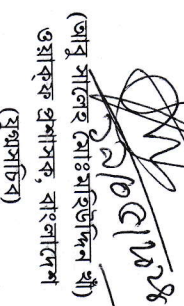 (আবু সালেহ মোঃ মহিউদ্দিন খাঁ)
ওয়াক্‌ফ প্রশাসক, বাংলাদেশ
(যুগ্মসচিব)